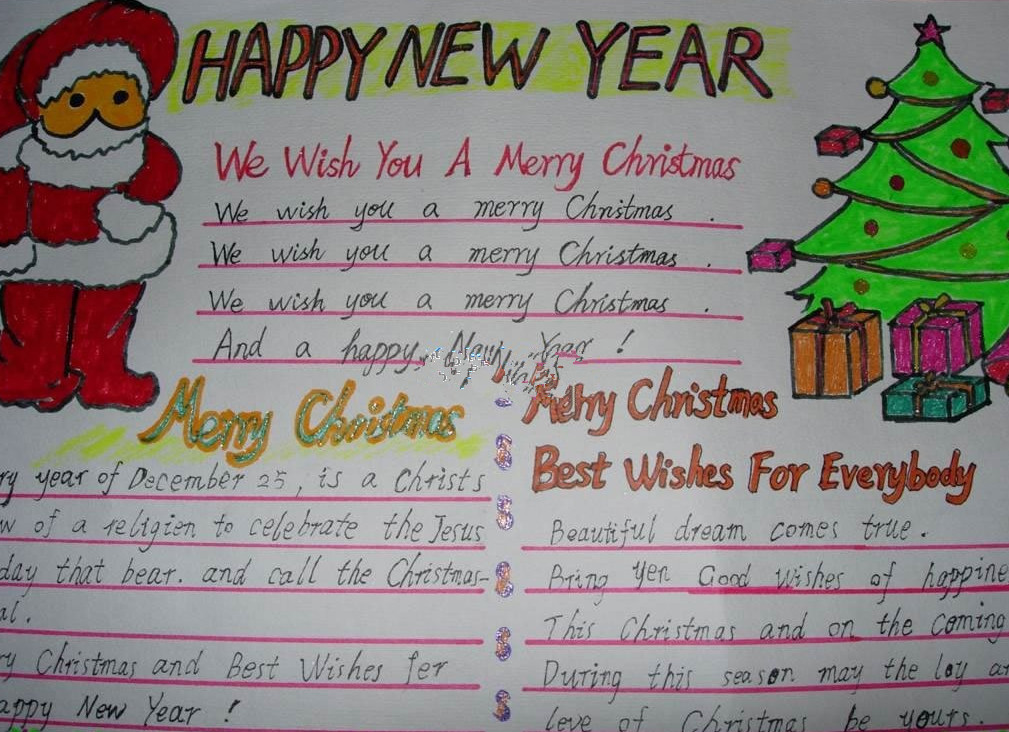 HAPPY NEW YEAR
We Wish You A Merry Christmas
We wish you a merry Christmas .
We wish you a merry Christmas .
We wish you a merry Christmas .
And a happy New Year !
Merry Christmas
ry year of December 25, is a Christs
w of a religien to celebrate the Jesus
day that bear. and call the Christmas-
al.
ry Christmas and Best Wishes fer
appy New Year !
Merry Christmas
Best Wishes For Everybody
Beautiful dream comes true.
Bring yen Good wishes of happine
This Christmas and on the coming
During this season may the loy an
leve of Christmas be yours.